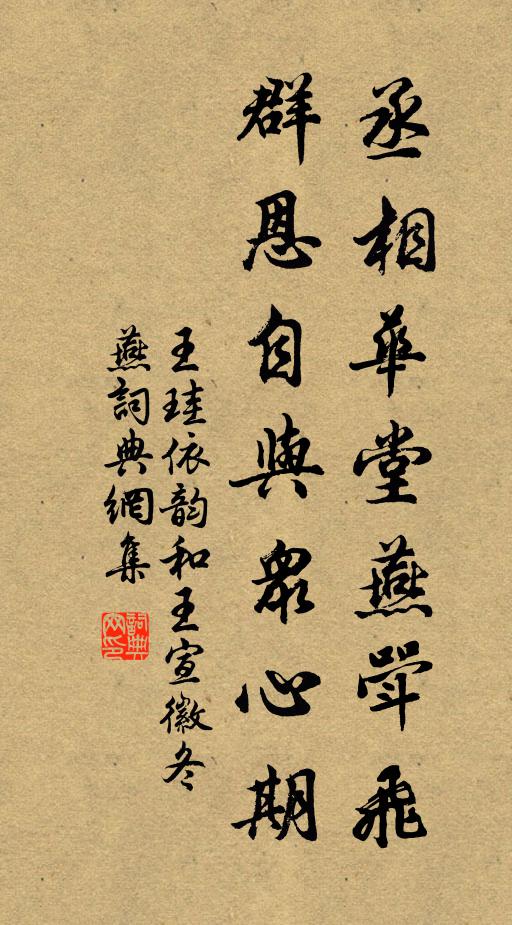 丞相華堂燕斝飛
群恩自與衆心期
王珪依韵和王宣徽冬
燕詞典網集
詞典
网印